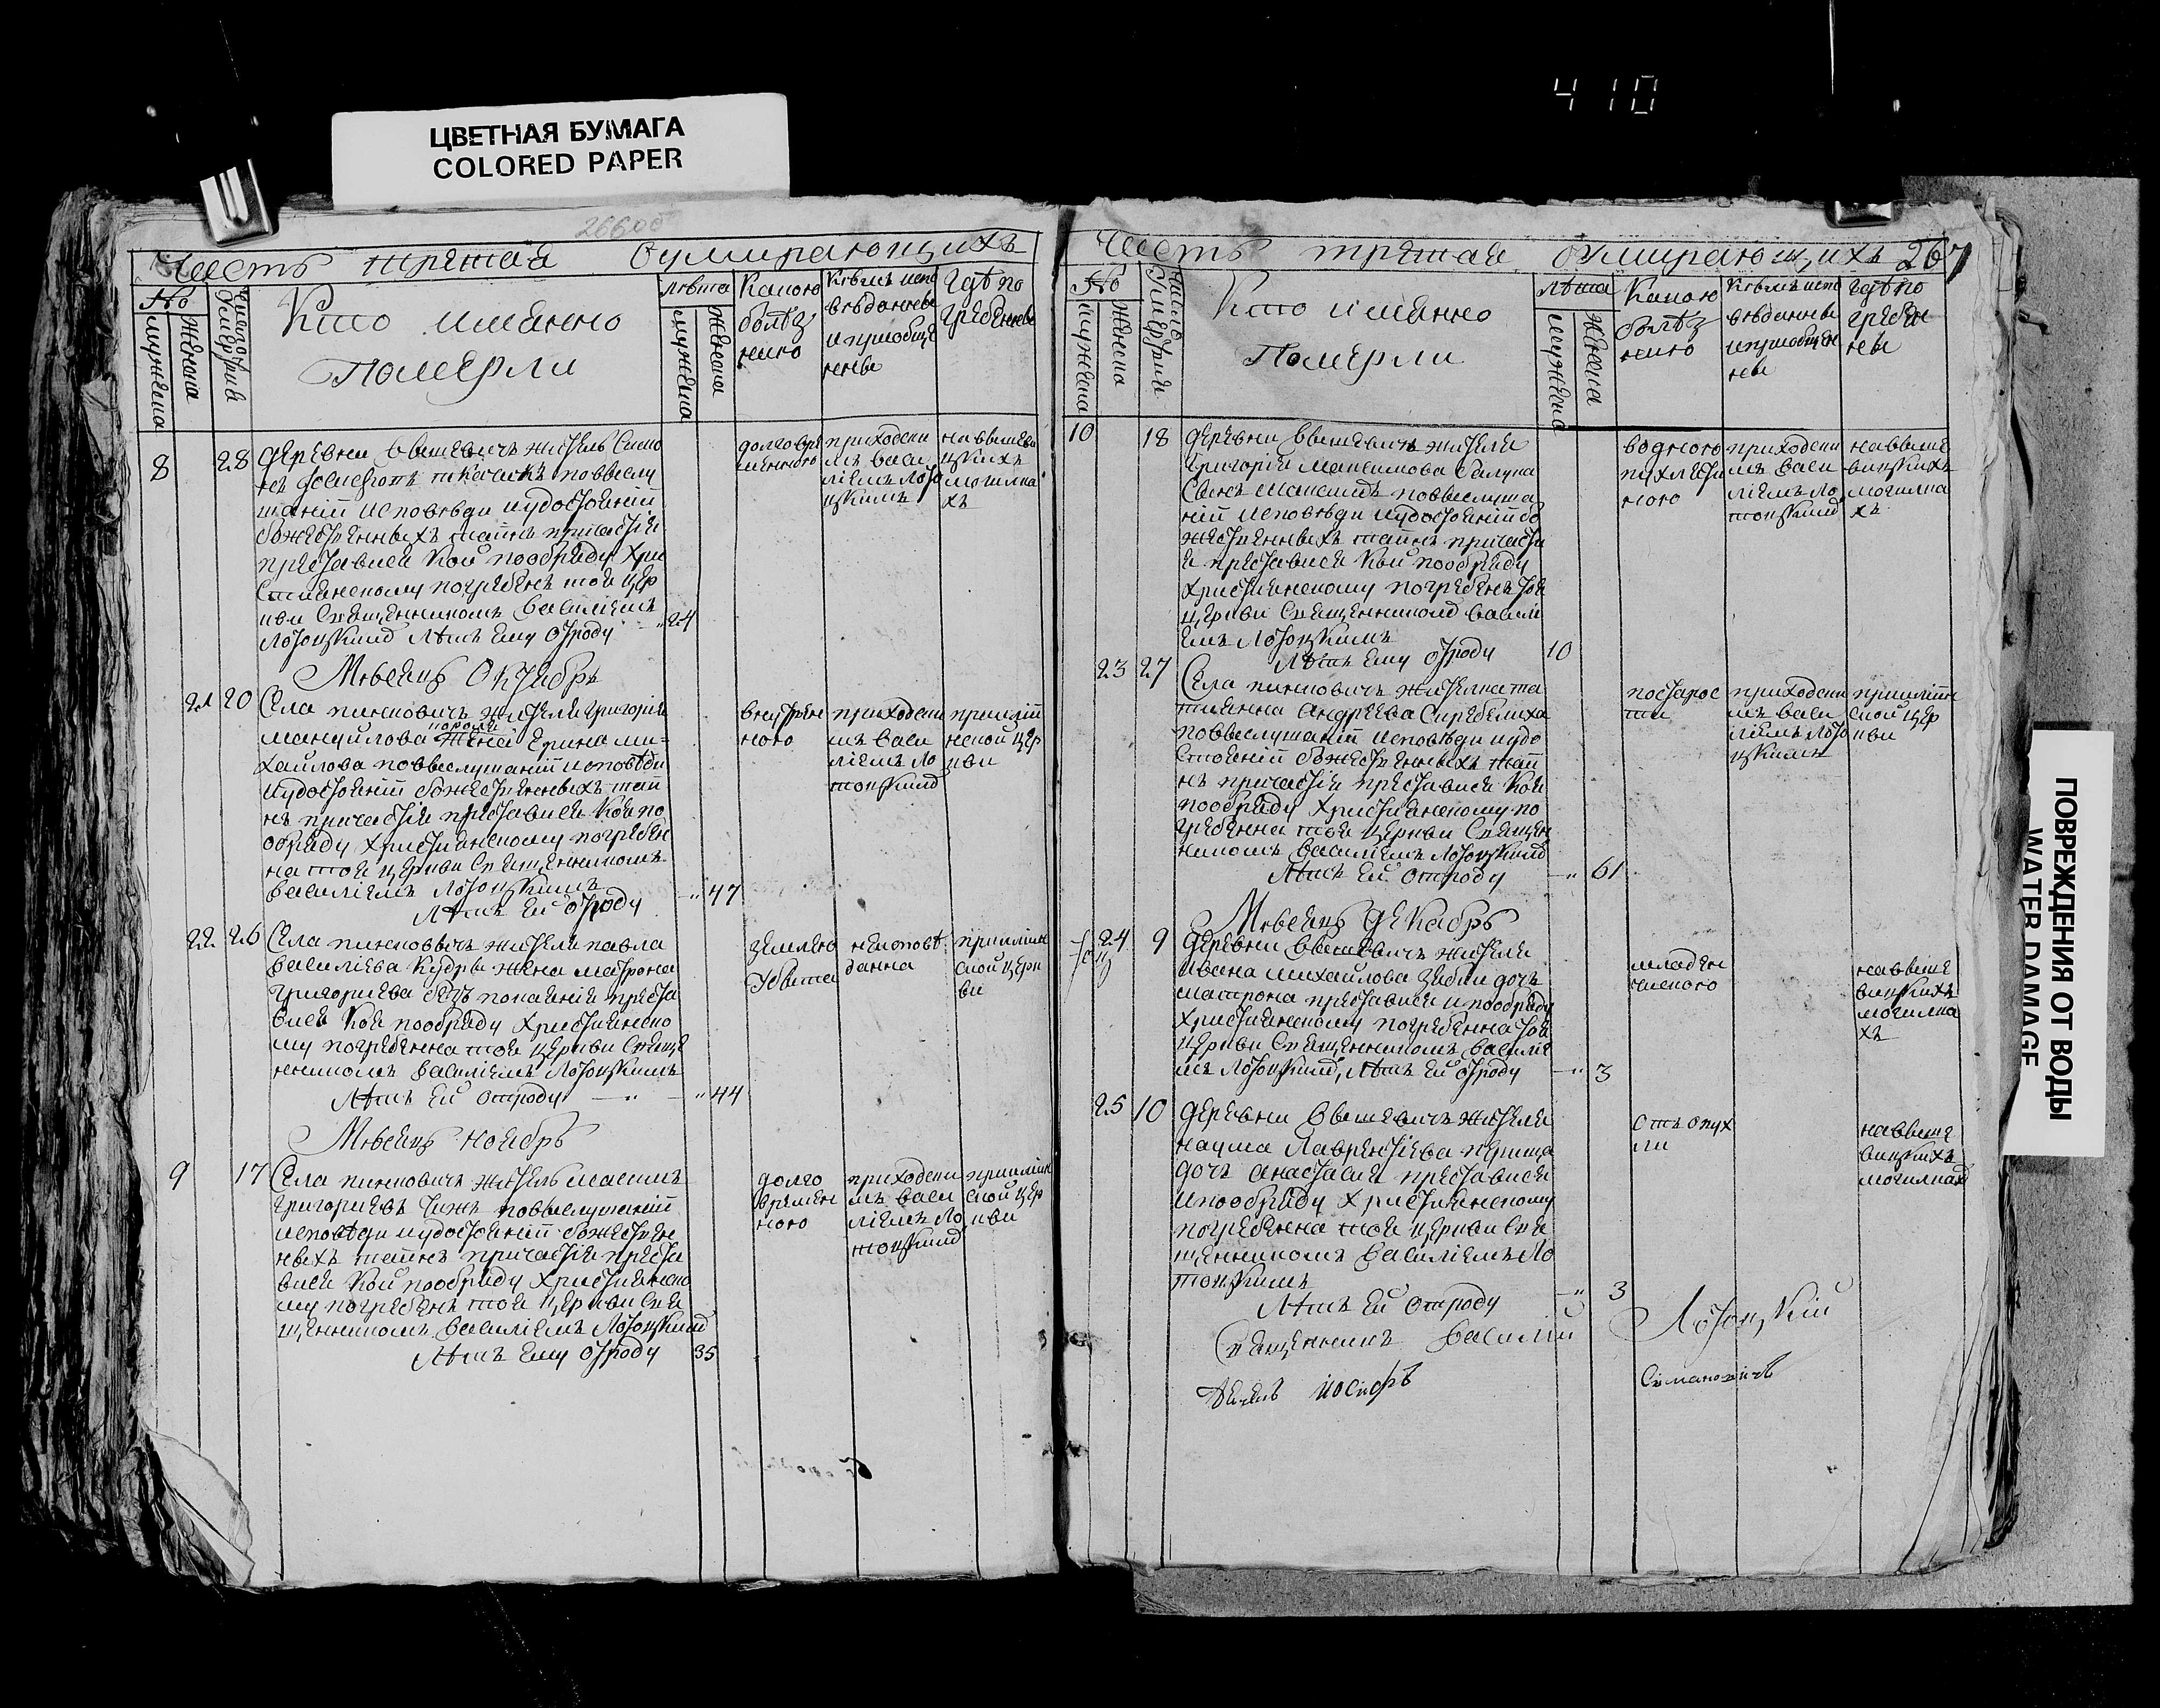 410
ЦВЕТНАЯ БУМАГА
COLORED PAPER
266об
Часть третая Оумирающихъ
№
мужеска
женска
число умертвия
Кто имянно
Померли
лѣта
мужеска
женска
Какою
болѣз
нию
Кѣмъ испо
вѣданны
и приобще
ненны
Гдѣ по
гребенны
8
28
деревни
житель
по выслу
шаніи исповѣди и удостоеніи
божественныхъ таинъ причастія
преставися кой по обряду хри
стианскому погребенъ тоя цер
кви священникомъ василіемъ
Лотоцкимъ лѣтъ ему отроду
24
долговре
менною
приходски
мъ васи
ліемъ Лото
цкимъ
могилка
хъ
Месяцъ Октябрь
21
20
Села пинковичъ жителя григорія
мануилова жена Ерина ми
хаилова по выслушаніи исповѣди
и удостоеніи божественныхъ таи
нъ причастія преставися коя по
обряду христианскому погребен
на тоя церкви священникомъ
василіемъ Лотоцкимъ
Лѣтъ ей отроду
47
внутрен
ною
приходски
мъ васи
ліемъ Ло
тоцкимъ
приклѣти
ской цер
кви
22
26
Села пинковичъ жителя павла
василіева Кудри жена матрона
григориева безъ покаянія преста
вися коя по обряду христианско
му погребенна тоя церкви свяще
нникомъ василіемъ Лотоцкимъ
Лѣтъ ей отроду
44
землею
убита
неисповѣ
данна
ской церк
ви
Месяцъ ноябрь
9
17
Села пинковичъ житель максимъ
григориевъ по выслушаніи
исповѣди и удостоеніи божествен
ныхъ таинъ причастія преста
вися кой по обряду христианско
му погребенъ тоя церкви свя
щенникомъ василіемъ Лотоцкимъ
Лѣтъ ему отроду
35
долго
времен
ною
приходски
мъ васи
ліемъ Ло
тоцкимъ
ской цер
кви
Часть третая оумирающихъ
267
№
мужеска
женска
число умертвия
Кто имянно
Померли
лѣта
мужеска
женска
Какою
болѣз
нию
Кѣмъ испо
вѣданны
и приобщен
ны
гдѣ по
гребен
ны
10
18
деревни вышевичъ жителя
Григорія максимова
сынъ максимъ по выслуша
ніи исповѣди и удостоеніи бо
жественныхъ таинъ причасти
я преставися кой по обряду
христианскому погребенъ тоя
церкви священникомъ васили
емъ Лотоцкимъ
Лѣтъ ему отроду
10
водною
пухлезн
ною
приходски
мъ васи
ліемъ Ло
тоцкимъ
на выше
вицкихъ
могилка
хъ
23
27
Села пинковичъ жителка та
тианна андреева
по выслушаніи исповѣди и удо
стоеніи божественныхъ таи
нъ причастія преставися коя
по обряду христианскому по
гребенна тоя церкви священ
никомъ василіемъ Лотоцкимъ
Лѣтъ ей отроду
61
по старос
ти
приходски
мъ васи
ліемъ Лото
цкимъ
ской цер
кви
Месяцъ декабрь
24
9
деревни вышевичъ жителя
ивана михаилова дочь
матрона преставися и по обряду
христианскому погребенна тоя
церкви священникомъ василіе
мъ Лотоцкимъ, лѣтъ ей отроду
3
младен
ческою
на выше
вицкихъ
могилка
хъ
25
10
деревни вышевичъ жителя
наума Лаврентіева
дочь анастасия преставися
и по обряду христианскому
погребенна тоя церкви свя
щенникомъ василіемъ Ло
тоцкимъ
Лѣтъ ей отроду
3
отъ опух
ли
на выше
вицкихъ
могилкахъ
Священникъ василій Лотоцкій
Дьячекъ иосифъ Симановичъ
ПОВРЕЖДЕНИЯ ОТ ВОДЫ
WATER DAMAGE